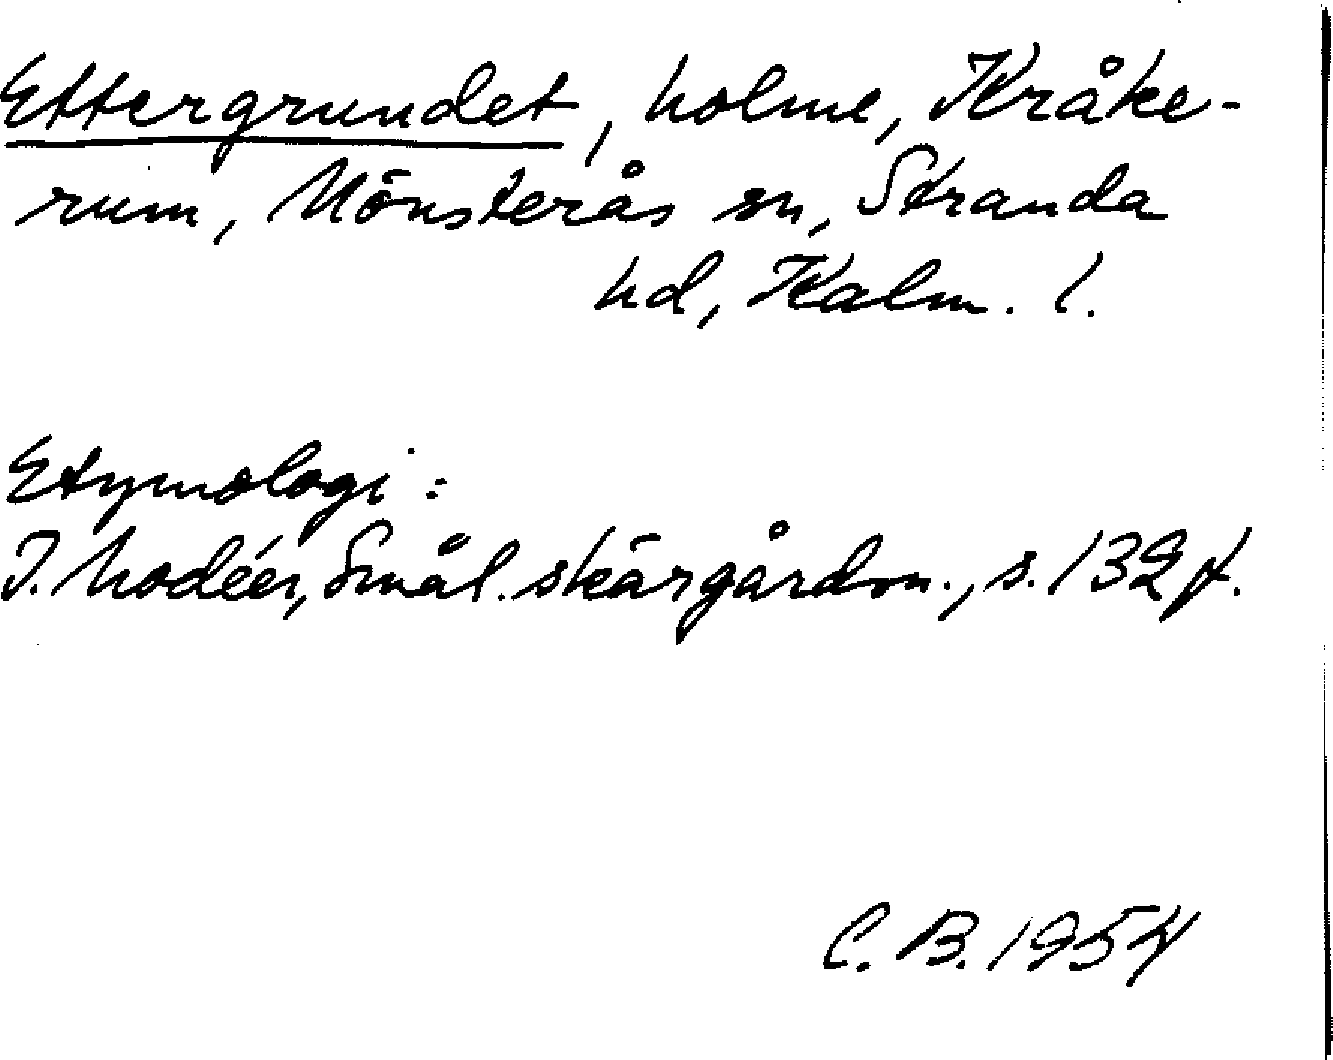 Ettergrundet, holme, Kråke-
rum, Mönsterås sn, Stranda
hd, Kalm. l.
Etymologi:
I. Modéer, Smål. skärgårdsn., s. 132 f.
C. B. 1954